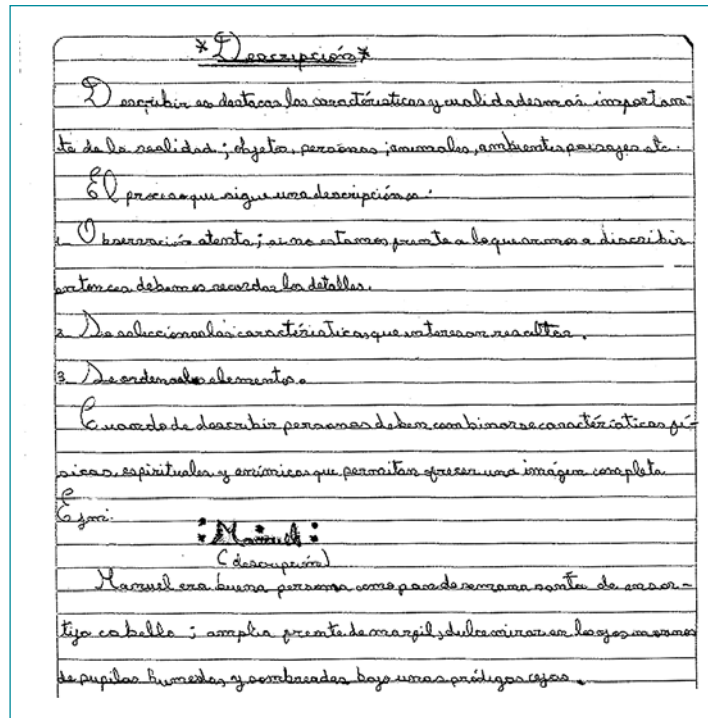 *Descripción*
Describir es destacas las caractéristicas y cualidades mas importan-
te de la realidad; objetos, personas; animales, ambientes paisajes etc.
El proceso que sigue una descripción es:
1. Observación atenta; si no estamos frente a lo que vamos a discribir
entonces debemos recordar los detalles.
2. Se seleccionas las caractéristicas, que interesan resaltar.
3. Se ordenan los elementos.
Cuando de describir personas deben combinarse caractéristicas fí-
sicas, espirituales y anímicas que permitan ofrecer una imágen completa
Ejm:
Manuel
(descripción)
Manuel era buena persona como pan de semana santa de ensor-
tijo cabello; amplia frente de marfil, dulce mirar en los ojos morenos
de pupilas humedas, y sombreadas bajo unas pródigas cejas.